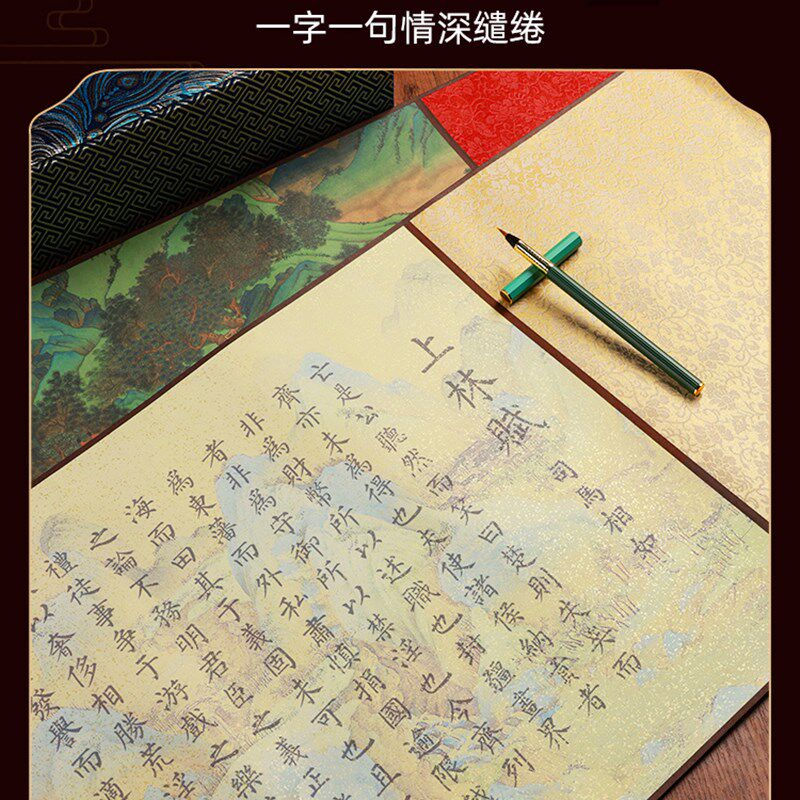 一字一句情深缱绻
上林賦
司馬相如
亡是公聽然而笑曰楚則失矣而
齊亦未為得也夫使諸侯納貢者
非為財幣所以述職也封疆畫界
者非為守御所以禁淫也今齊列
為東藩而外私肅慎捐國逾限越
海而田其于義固未可也且
之論不務明君臣之義正
禮徒事爭于游戲之樂
以奢侈相勝荒淫
發譽而適